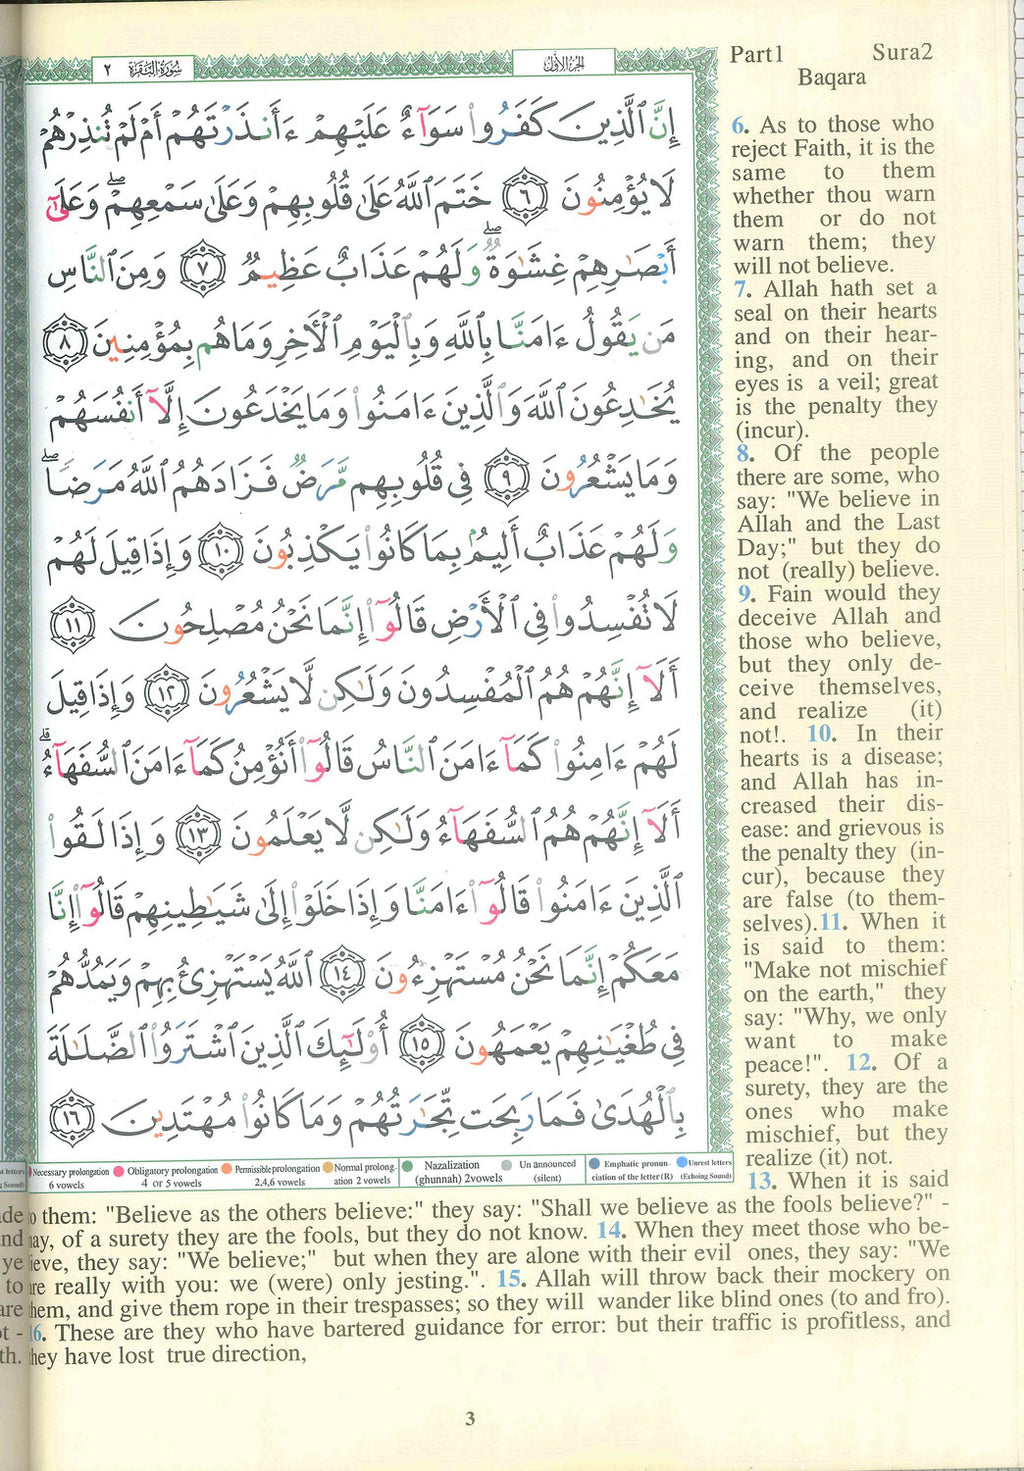 سُورَةُ البَقَرَة ٢
الجُزءُ الأَوَّلُ
Part1 Sura2
Baqara
إِنَّ ٱلَّذِينَ كَفَرُوا۟ سَوَآءٌ عَلَيْهِمْ ءَأَنذَرْتَهُمْ أَمْ لَمْ تُنذِرْهُمْ
لَا يُؤْمِنُونَ ٦ خَتَمَ ٱللَّهُ عَلَىٰ قُلُوبِهِمْ وَعَلَىٰ سَمْعِهِمْ ۖ وَعَلَىٰٓ
أَبْصَـٰرِهِمْ غِشَـٰوَةٌ ۖ وَلَهُمْ عَذَابٌ عَظِيمٌ ٧ وَمِنَ ٱلنَّاسِ
مَن يَقُولُ ءَامَنَّا بِٱللَّهِ وَبِٱلْيَوْمِ ٱلْـَٔاخِرِ وَمَا هُم بِمُؤْمِنِينَ ٨
يُخَـٰدِعُونَ ٱللَّهَ وَٱلَّذِينَ ءَامَنُوا۟ وَمَا يَخْدَعُونَ إِلَّآ أَنفُسَهُمْ
وَمَا يَشْعُرُونَ ٩ فِى قُلُوبِهِم مَّرَضٌ فَزَادَهُمُ ٱللَّهُ مَرَضًا ۖ
وَلَهُمْ عَذَابٌ أَلِيمٌۢ بِمَا كَانُوا۟ يَكْذِبُونَ ١٠ وَإِذَا قِيلَ لَهُمْ
لَا تُفْسِدُوا۟ فِى ٱلْأَرْضِ قَالُوٓا۟ إِنَّمَا نَحْنُ مُصْلِحُونَ ١١
أَلَآ إِنَّهُمْ هُمُ ٱلْمُفْسِدُونَ وَلَـٰكِن لَّا يَشْعُرُونَ ١٢ وَإِذَا قِيلَ
لَهُمْ ءَامِنُوا۟ كَمَآ ءَامَنَ ٱلنَّاسُ قَالُوٓا۟ أَنُؤْمِنُ كَمَآ ءَامَنَ ٱلسُّفَهَآءُ ۗ
أَلَآ إِنَّهُمْ هُمُ ٱلسُّفَهَآءُ وَلَـٰكِن لَّا يَعْلَمُونَ ١٣ وَإِذَا لَقُوا۟
ٱلَّذِينَ ءَامَنُوا۟ قَالُوٓا۟ ءَامَنَّا وَإِذَا خَلَوْا۟ إِلَىٰ شَيَـٰطِينِهِمْ قَالُوٓا۟ إِنَّا
مَعَكُمْ إِنَّمَا نَحْنُ مُسْتَهْزِءُونَ ١٤ ٱللَّهُ يَسْتَهْزِئُ بِهِمْ وَيَمُدُّهُمْ
فِى طُغْيَـٰنِهِمْ يَعْمَهُونَ ١٥ أُو۟لَـٰٓئِكَ ٱلَّذِينَ ٱشْتَرَوُا۟ ٱلضَّلَـٰلَةَ
بِٱلْهُدَىٰ فَمَا رَبِحَت تِّجَـٰرَتُهُمْ وَمَا كَانُوا۟ مُهْتَدِينَ ١٦
Necessary prolongation 6 vowels
Obligatory prolongation 4 or 5 vowels
Permissible prolongation 2,4,6 vowels
Normal prolong-ation 2 vowels
Nazalization (ghunnah) 2vowels
Un announced (silent)
Emphatic pronun-ciation of the letter (R)
Unrest letters (Echoing Sound)
6. As to those who
reject Faith, it is the
same to them
whether thou warn
them or do not
warn them; they
will not believe.
7. Allah hath set a
seal on their hearts
and on their hear-
ing, and on their
eyes is a veil; great
is the penalty they
(incur).
8. Of the people
there are some, who
say: "We believe in
Allah and the Last
Day;" but they do
not (really) believe.
9. Fain would they
deceive Allah and
those who believe,
but they only de-
ceive themselves,
and realize (it)
not!. 10. In their
hearts is a disease;
and Allah has in-
creased their dis-
ease: and grievous is
the penalty they (in-
cur), because they
are false (to them-
selves).11. When it
is said to them:
"Make not mischief
on the earth," they
say: "Why, we only
want to make
peace!". 12. Of a
surety, they are the
ones who make
mischief, but they
realize (it) not.
13. When it is said
to them: "Believe as the others believe:" they say: "Shall we believe as the fools believe?" -
nay, of a surety they are the fools, but they do not know. 14. When they meet those who be-
lieve, they say: "We believe;" but when they are alone with their evil ones, they say: "We
are really with you: we (were) only jesting.". 15. Allah will throw back their mockery on
them, and give them rope in their trespasses; so they will wander like blind ones (to and fro).
16. These are they who have bartered guidance for error: but their traffic is profitless, and
they have lost true direction,
3